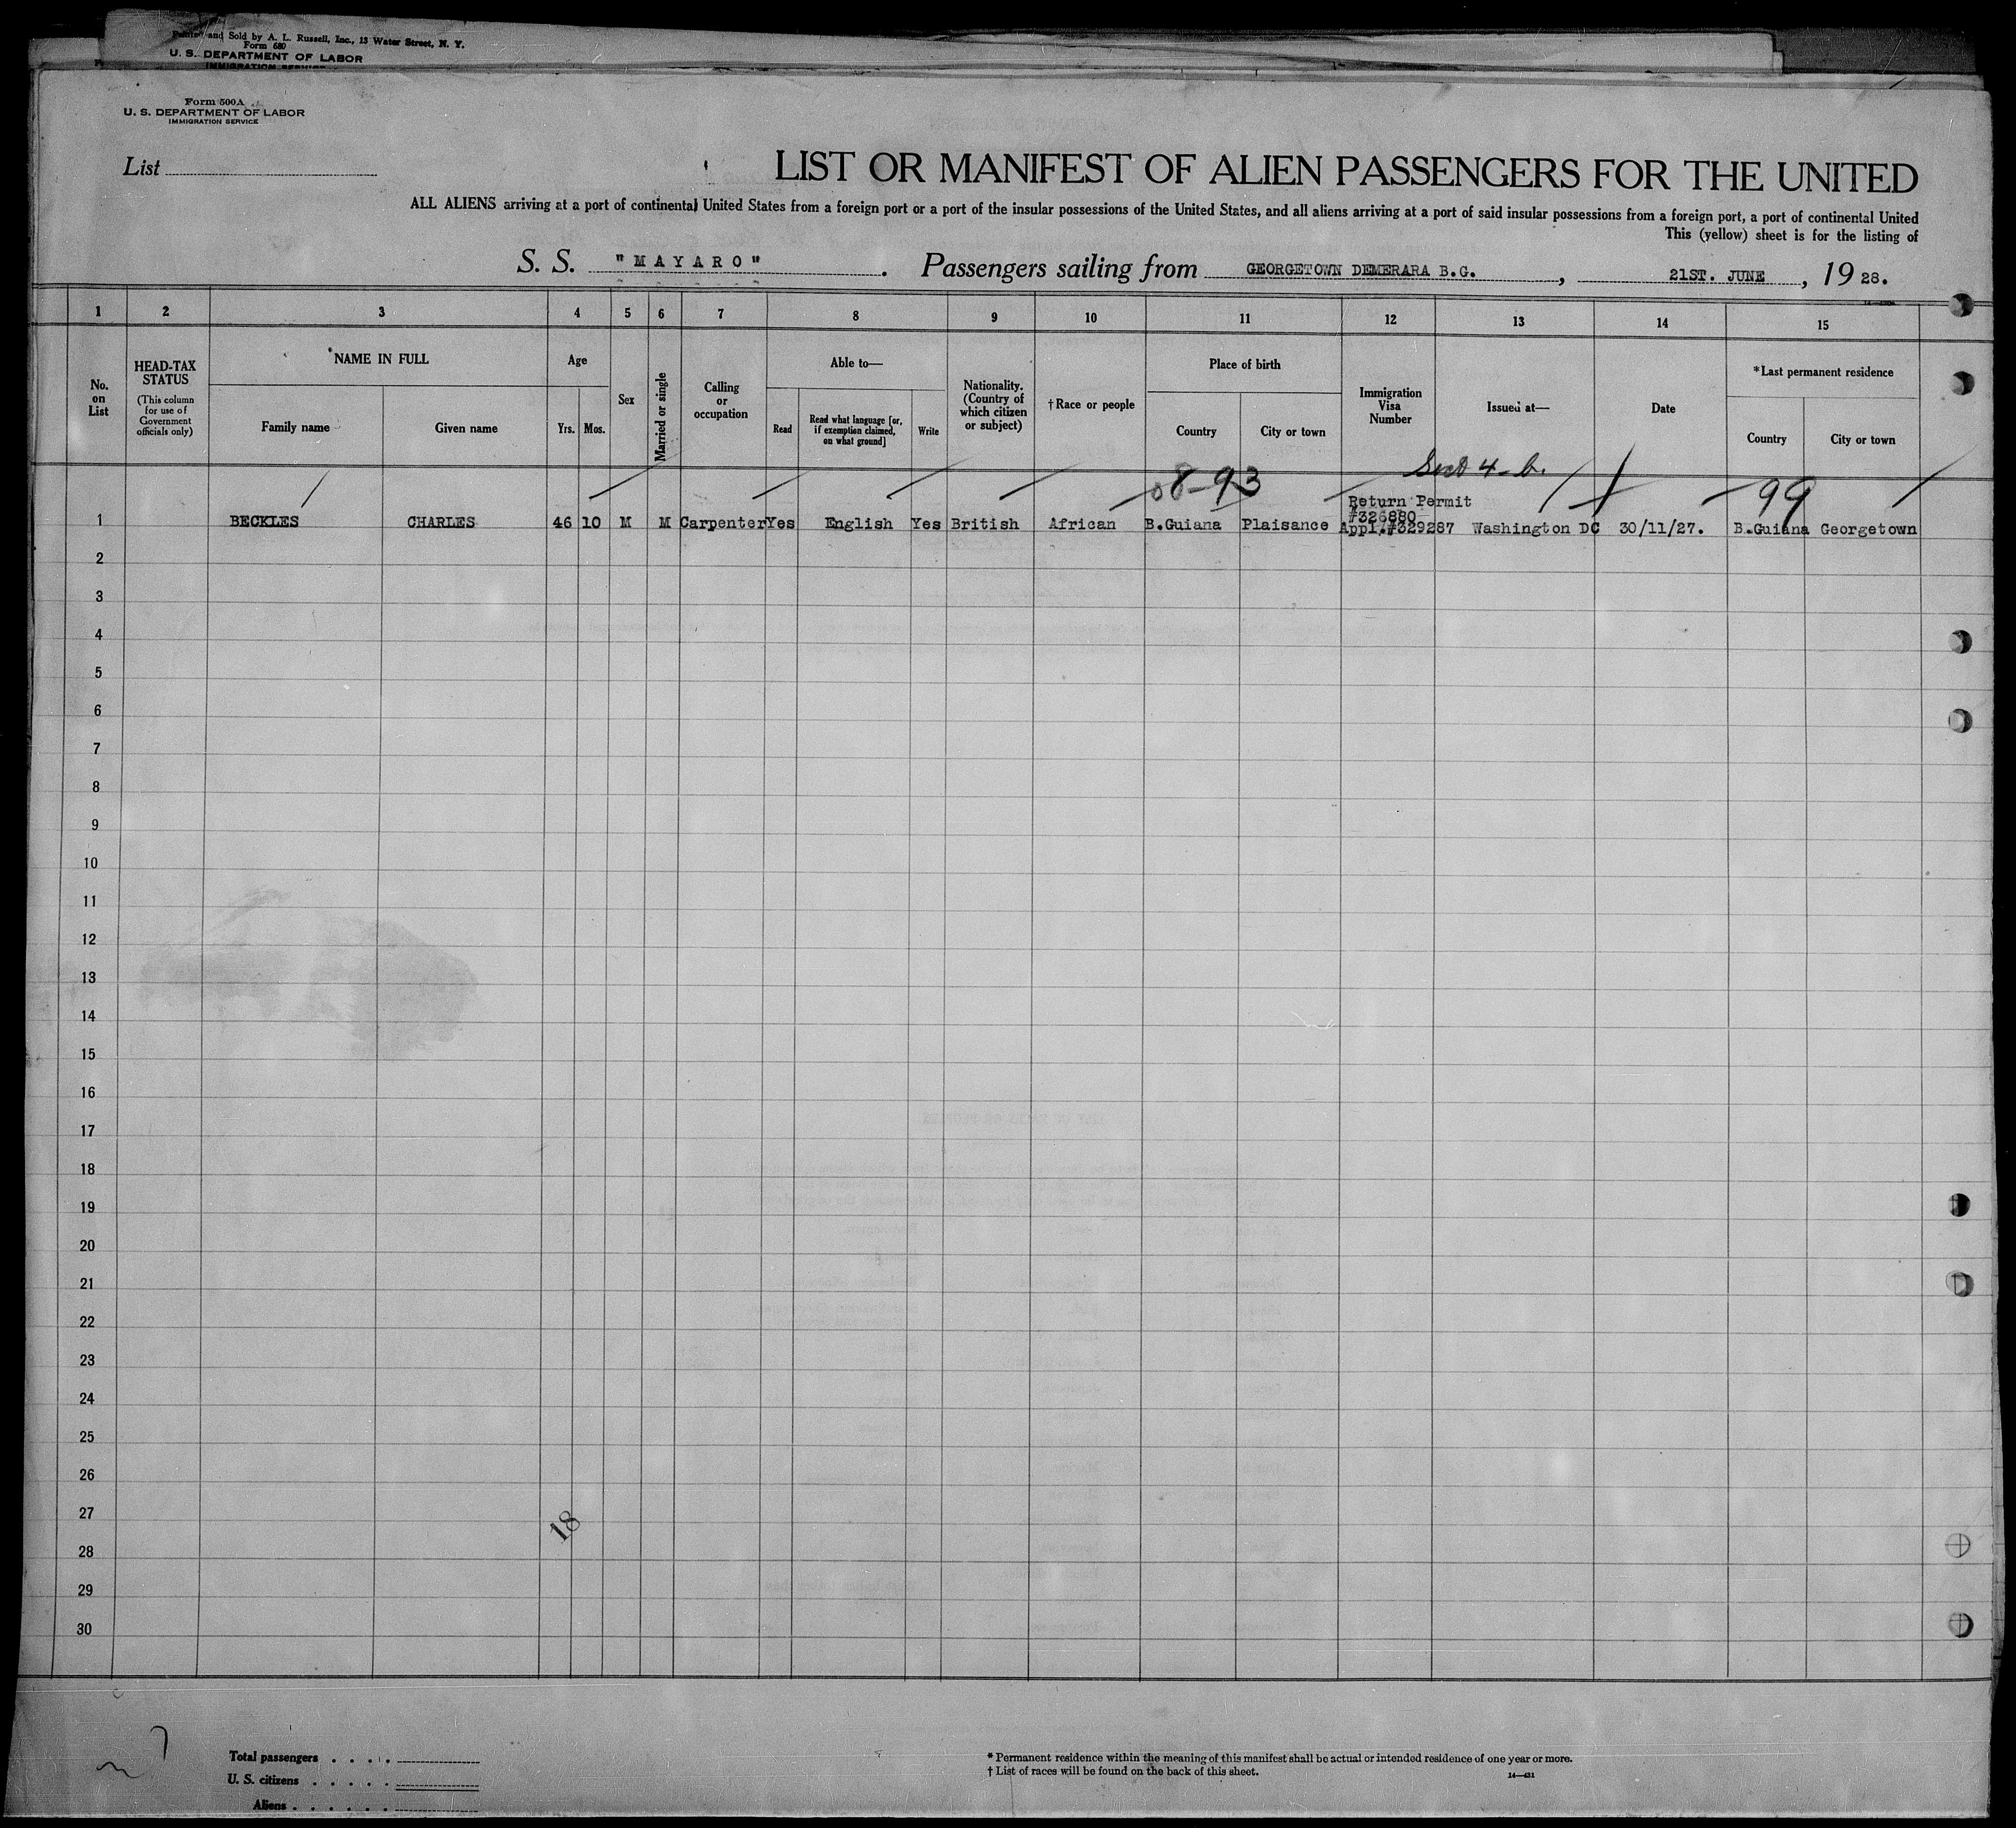 Printed and Sold by A. L. Russell, Inc., 13 Water Street, N. Y.
Form 680
U. S. DEPARTMENT OF LABOR
IMMIGRATION SERVICE
Form 500A
U. S. DEPARTMENT OF LABOR
IMMIGRATION SERVICE
List
LIST OR MANIFEST OF ALIEN PASSENGERS FOR THE UNITED
ALL ALIENS arriving at a port of continental United States from a foreign port or a port of the insular possessions of the United States, and all aliens arriving at a port of said insular possessions from a foreign port, a port of continental United
This (yellow) sheet is for the listing of
S. S. "MAYARO". Passengers sailing from GEORGETOWN DEMERARA B.G., 21ST. JUNE, 1928.
1 2 3 4 5 6 7 8 9 10 11 12 13 14 15
No. on List
HEAD-TAX STATUS
(This column for use of Government officials only)
NAME IN FULL
Family name Given name
Age
Yrs. Mos.
Sex
Married or single
Calling or occupation
Able to—
Read
Read what language [or, if exemption claimed, on what ground]
Write
Nationality. (Country of which citizen or subject)
†Race or people
Place of birth
Country City or town
Immigration Visa Number
Issued at—
Date
*Last permanent residence
Country City or town
08-93 Sect 4-b. 99
Return Permit
#326880
1 BECKLES CHARLES 46 10 M M Carpenter Yes English Yes British African B.Guiana Plaisance Appl.#329287 Washington DC 30/11/27. B.Guiana Georgetown
2
3
4
5
6
7
8
9
10
11
12
13
14
15
16
17
18
19
20
21
22
23
24
25
26
27
18
28
29
30
Total passengers
U. S. citizens
Aliens
* Permanent residence within the meaning of this manifest shall be actual or intended residence of one year or more.
† List of races will be found on the back of this sheet.
14—431